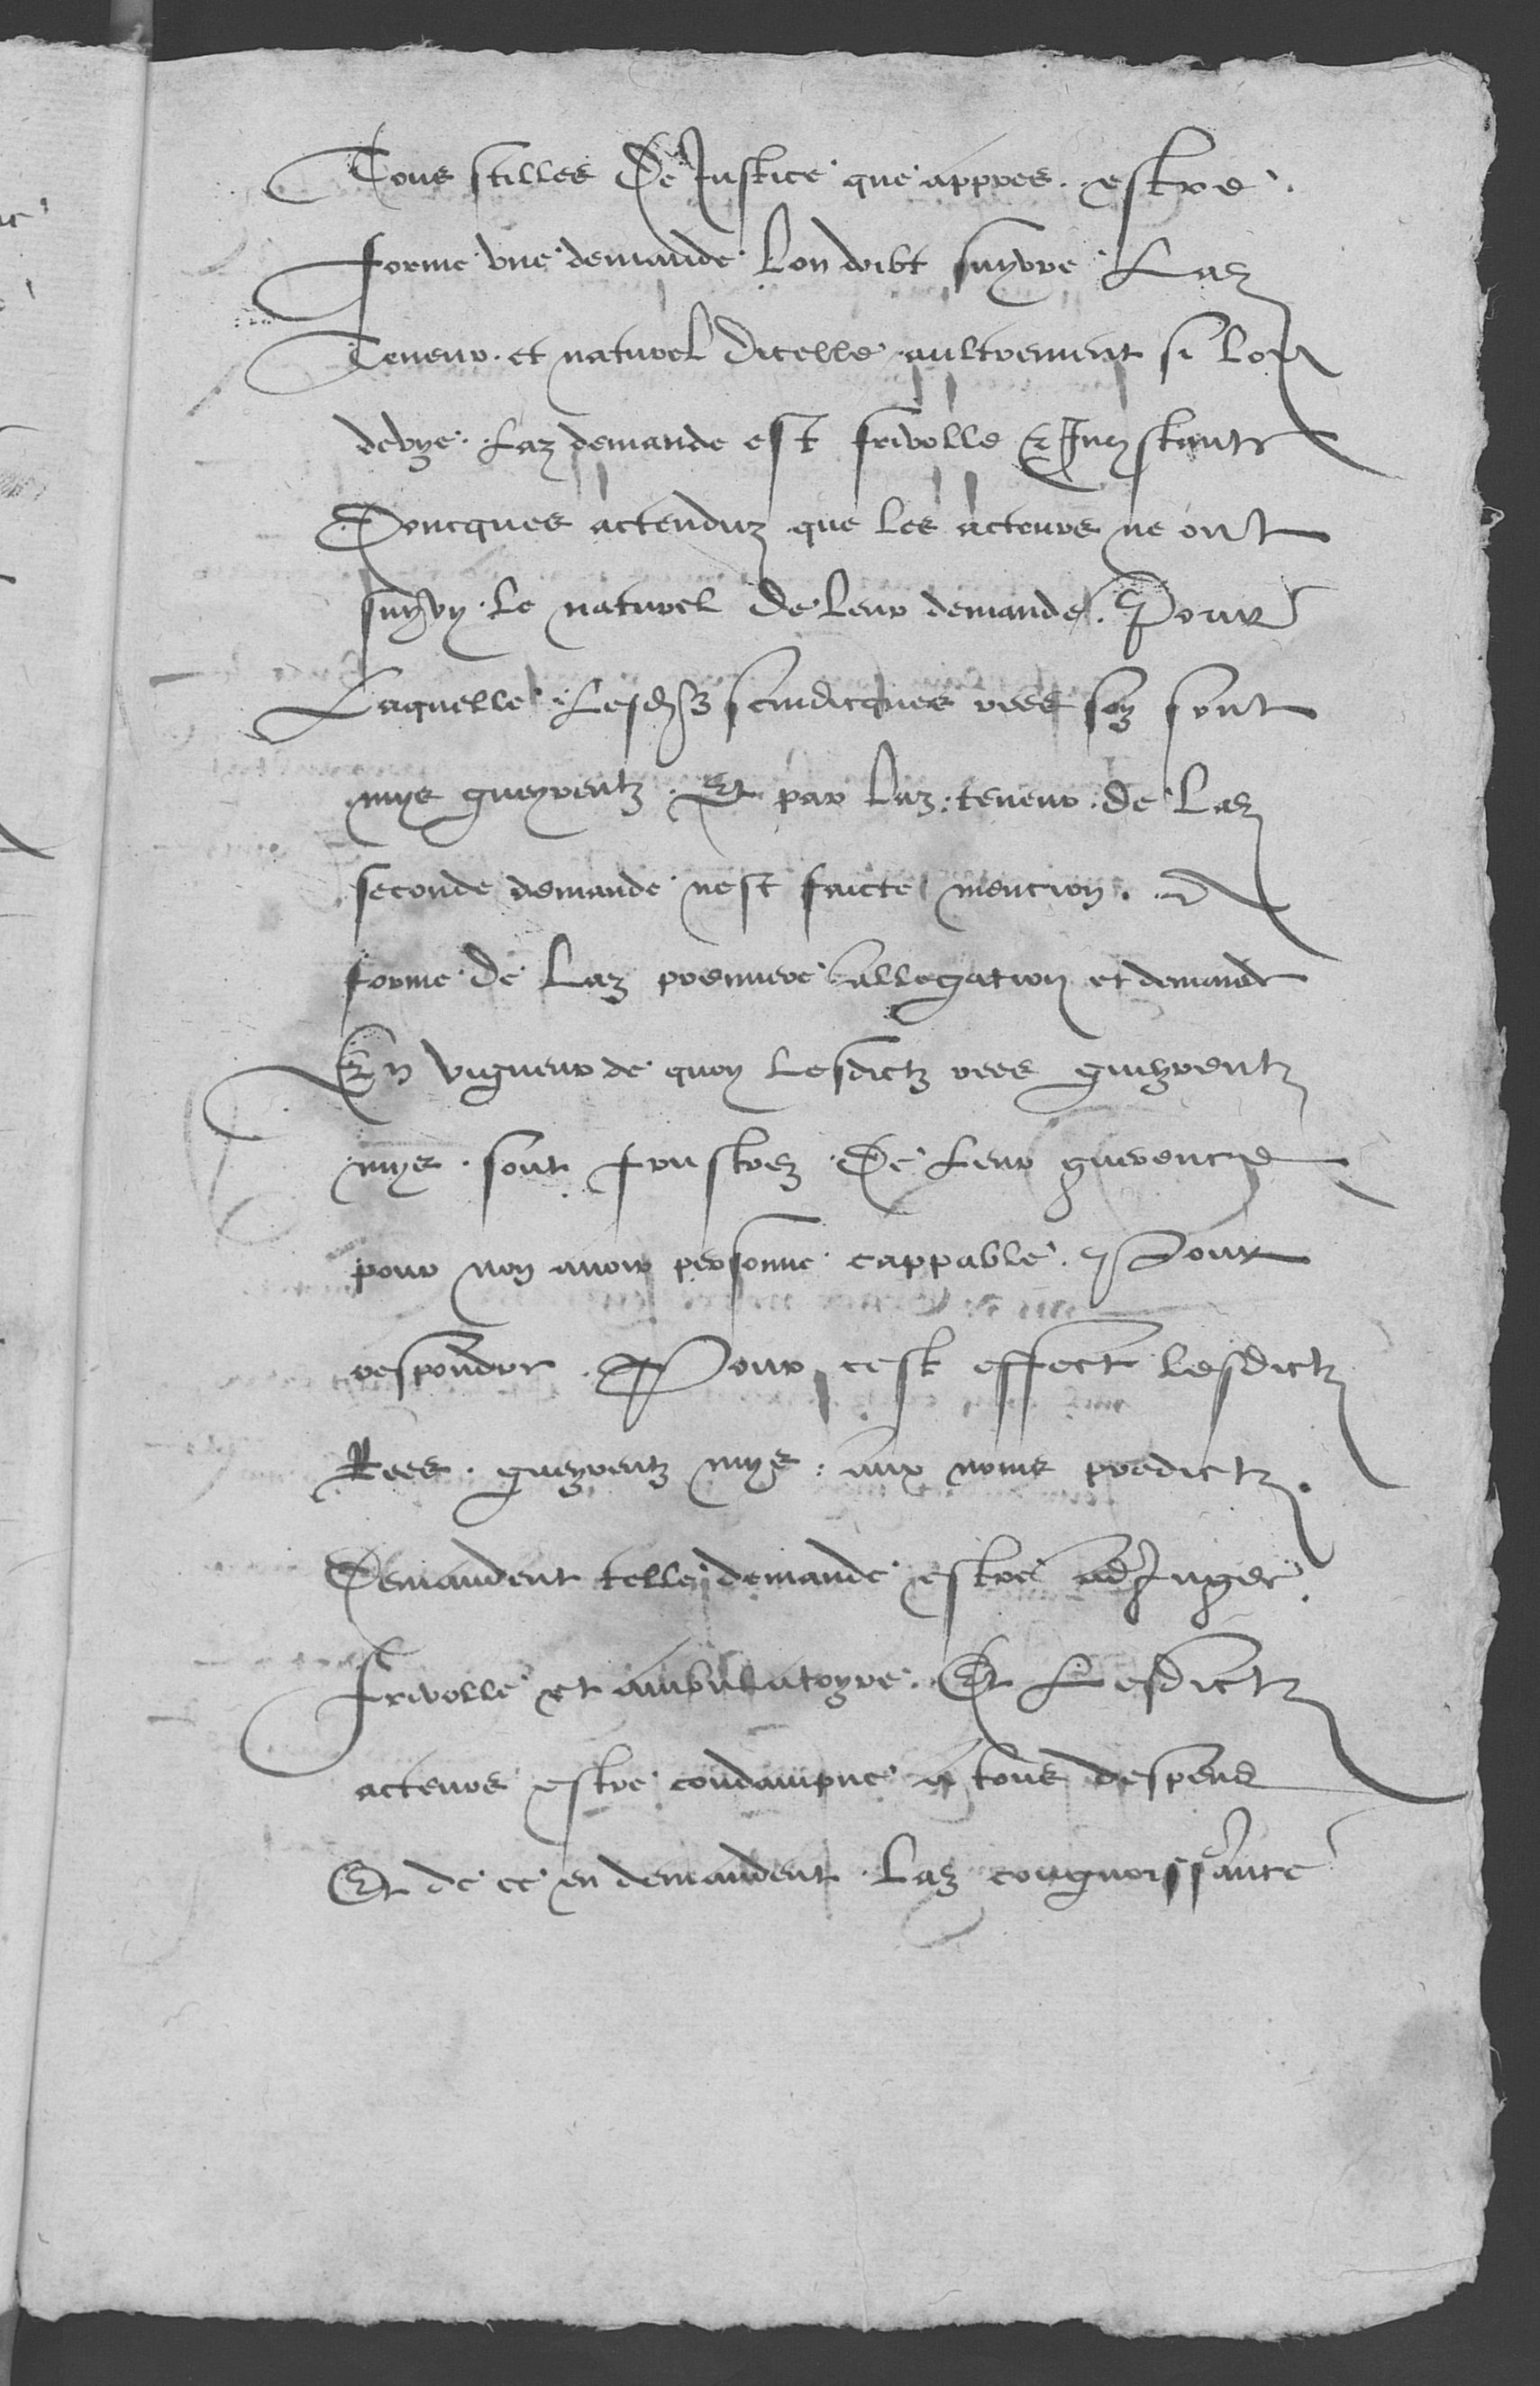 Tous stilles de Justice que appres estre
forme une demande lon doibt suyvre Laz
Teneur et naturel dicelle aultrement si lon
devye Laz demande est frivolle &
Doncques actenduz que les acteurs ne ont
suyvy le naturel de leur demande. Pour
Laquelle Lesdz scindicques rees soy sont
mys gueyrentz. Et par Laz teneur de Laz
seconde demande nest faicte mention.
forme de Laz premiere allegation et demande
En vigueur de quoy Lesdictz rees gueyrentz
mys sont frustrez de leur guerence
pour non avoir personne cappable. pour
respondre. Pour cest effect lesdictz
Rees gueyrentz mys aux noms predictz.
Demandent telle demande estre adJuger
frivolle et ambulatoyre. Et Lesdictz
acteurs estre condampne a tous despens
Et de ce en demandent Laz congnoissance